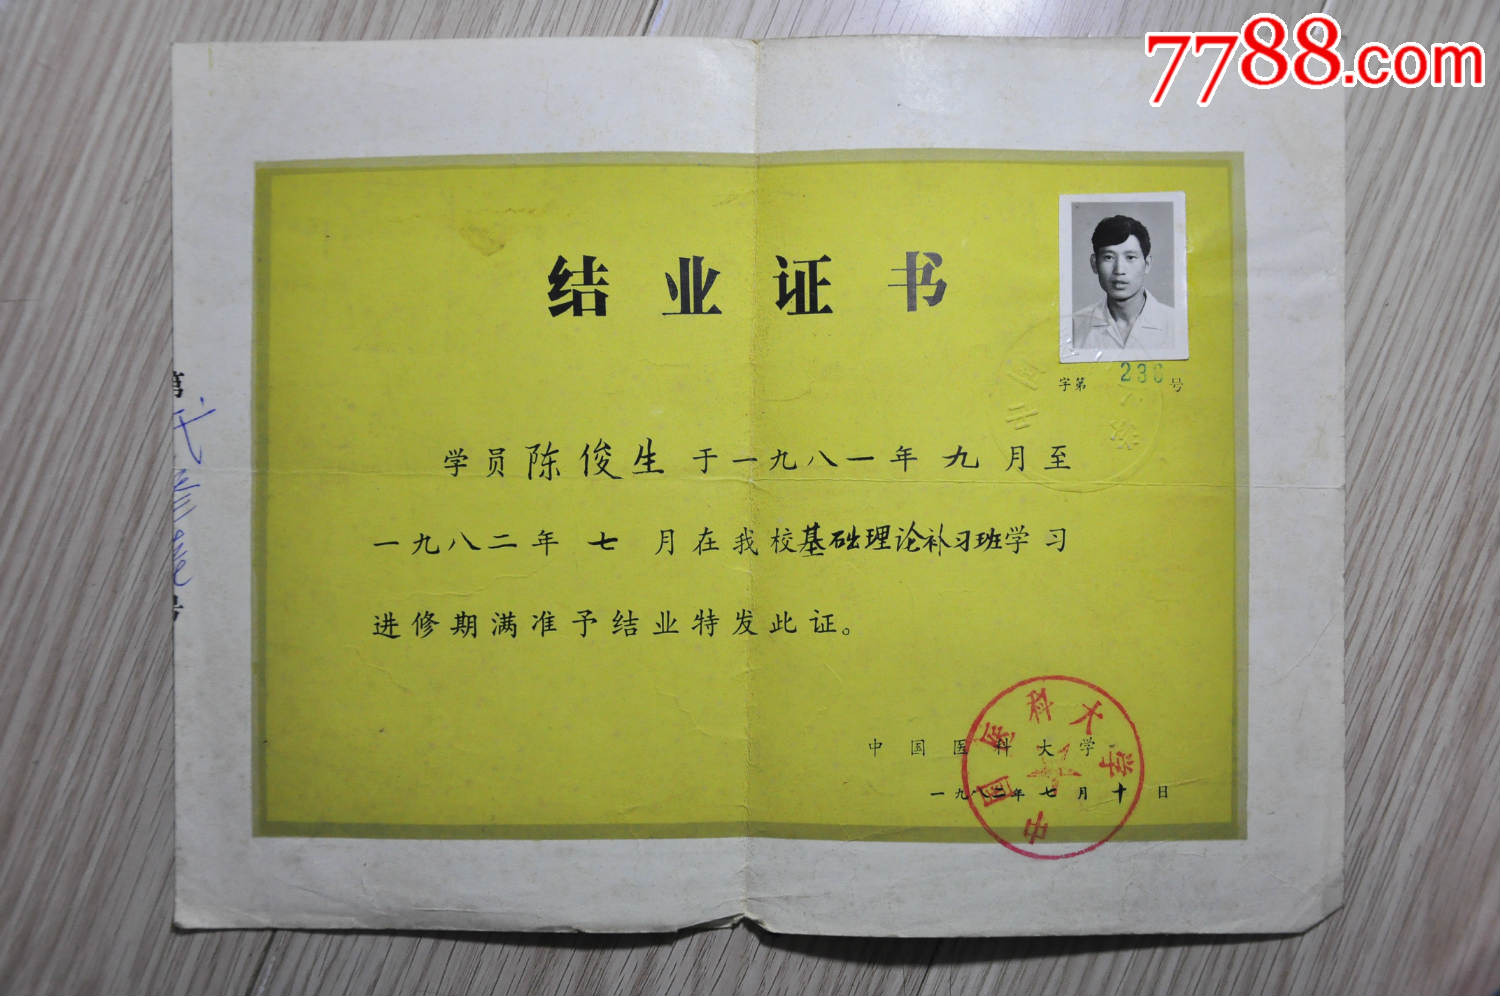 7788.com
结业证书
字第 236 号
学员陈俊生于一九八一年九月至
一九八二年七月在我校基础理论补习班学习
进修期满准予结业特发此证。
中国医科大学
一九八二年七月十日
中国医科大学
第
号